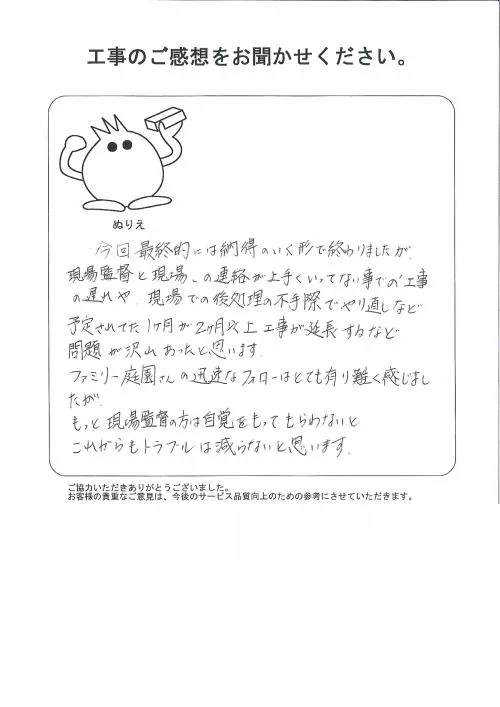 工事のご感想をお聞かせください。
ぬりえ
今回最終的には納得のいく形で終わりましたが、
現場監督と現場、の連絡が上手くいってない事での工事
の遅れや、現場での後処理の不手際でやり直しなど
予定されてた1ヶ月が2ヶ月以上工事が延長するなど
問題が沢山あったと思います。
ファミリー庭園さんの迅速なフォローはとても有り難く感じまし
たが、
もっと現場監督の方は自覚をもってもらわないと
これからもトラブルは減らないと思います。
ご協力いただきありがとうございました。
お客様の貴重なご意見は、今後のサービス品質向上のための参考にさせていただきます。